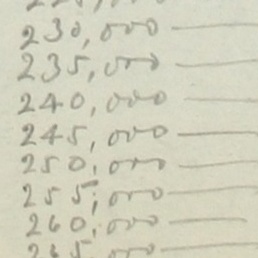 225,000
230,000 —
235,000 —
240,000 —
245,000 —
250,000 —
255,000 —
260,000 —
265,000 —